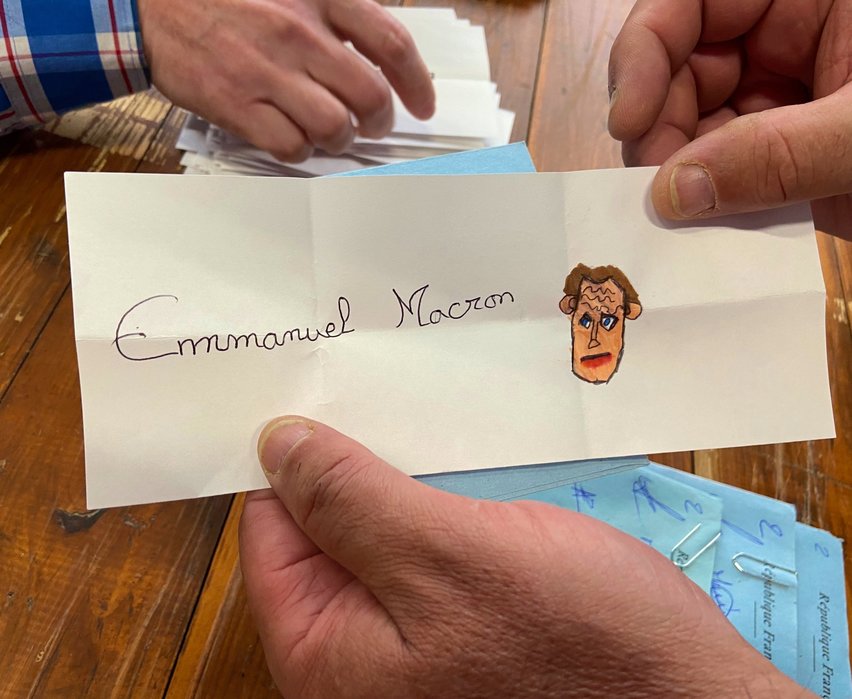 Emmanuel Macron
2
2
2
République Fran
République Fran